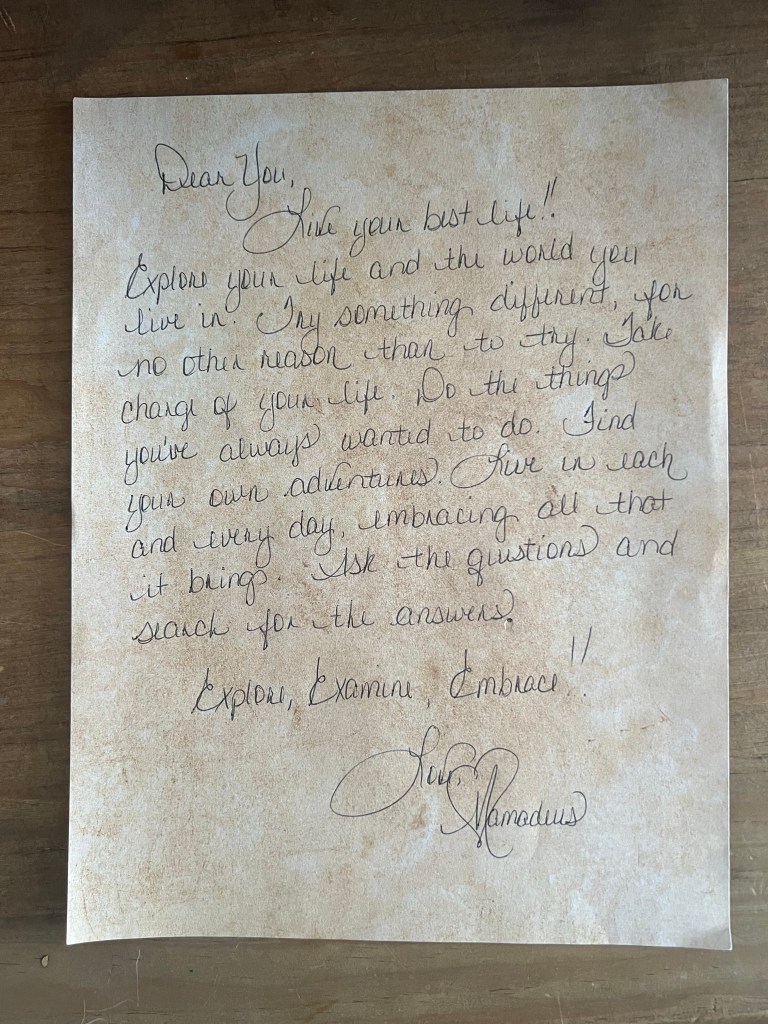 Dear You,
Live your best life!!
Explore your life and the world you
live in. Try something different, for
no other reason than to try. Take
charge of your life. Do the things
you've always wanted to do. Find
your own adventures. Live in each
and every day, embracing all that
it brings. Ask the questions and
search for the answers.
Explore, Examine, Embrace!!
Love,
Mamadeus